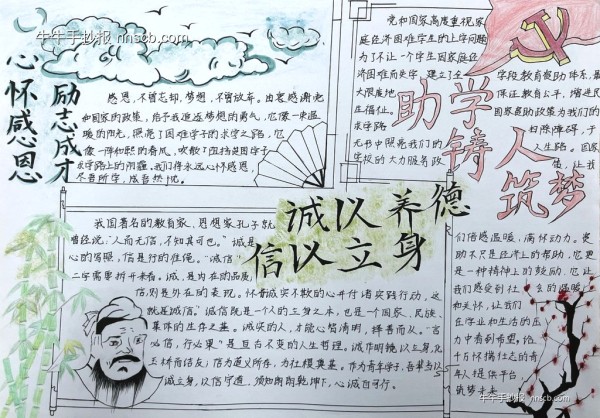 牛牛手抄报 nnscb.com
心怀感恩
励志成才
感恩，不曾忘却，梦想，不曾放弃。由衷感谢党
和国家的政策，给予我追逐梦想的勇气，它像一束温
暖的阳光，照亮了困难学子的求学之路，它
像一阵和煦的春风，吹散了压抑贫困学子
求学路上的阴霾。我们将永远心怀感恩，
尽吾所学，成吾所优。
党和国家高度重视家
庭经济困难学生的上学问题
为了不让一个学生因家庭经
济困难而失学，建立了全
学段教育资助体系，最
大限度地
保证教育公平，增进民
生福祉。
国家资助政策为我们的
求学路
扫除障碍，于
无书中照亮我们的
人生路。国家
学校的大力服务政
让我
助学铸人
筑梦
诚以养德
信以立身
我国著名的教育家、思想家孔子就
曾经说：“人而无信，不知其可也。”诚是
心的塔照，信是行的准绳。“诚信”
二字需要拆开来看。诚，是内在的品质，
信，则是外在的表现。怀着诚实不欺的心并付诸实践行动，这
就是诚信。诚信既是一个人的立身之本，也是一个国家、民族、
集体的生存之基。诚实的人，才能心如清明，择善而从。“言
必信，行必果”是亘古不变的人生哲理。诚作明镜以立身，化
玉桥而结友；信为道义所存，为社稷奠基。作为青年学子，吾辈当以
诚立身，以信守道，须知朗朗乾坤下，心诚自可行。
们倍感温暖，满怀动力。资
助不只是经济上的帮助，它更
是一种精神上的鼓励，它让
我们感受到社会的温暖
和关怀，让我们
在学业和生活的压
力中看到希望。给
千万怀揣壮志的青
年人提供平台
筑梦未来
牛牛手抄报 nnscb.com